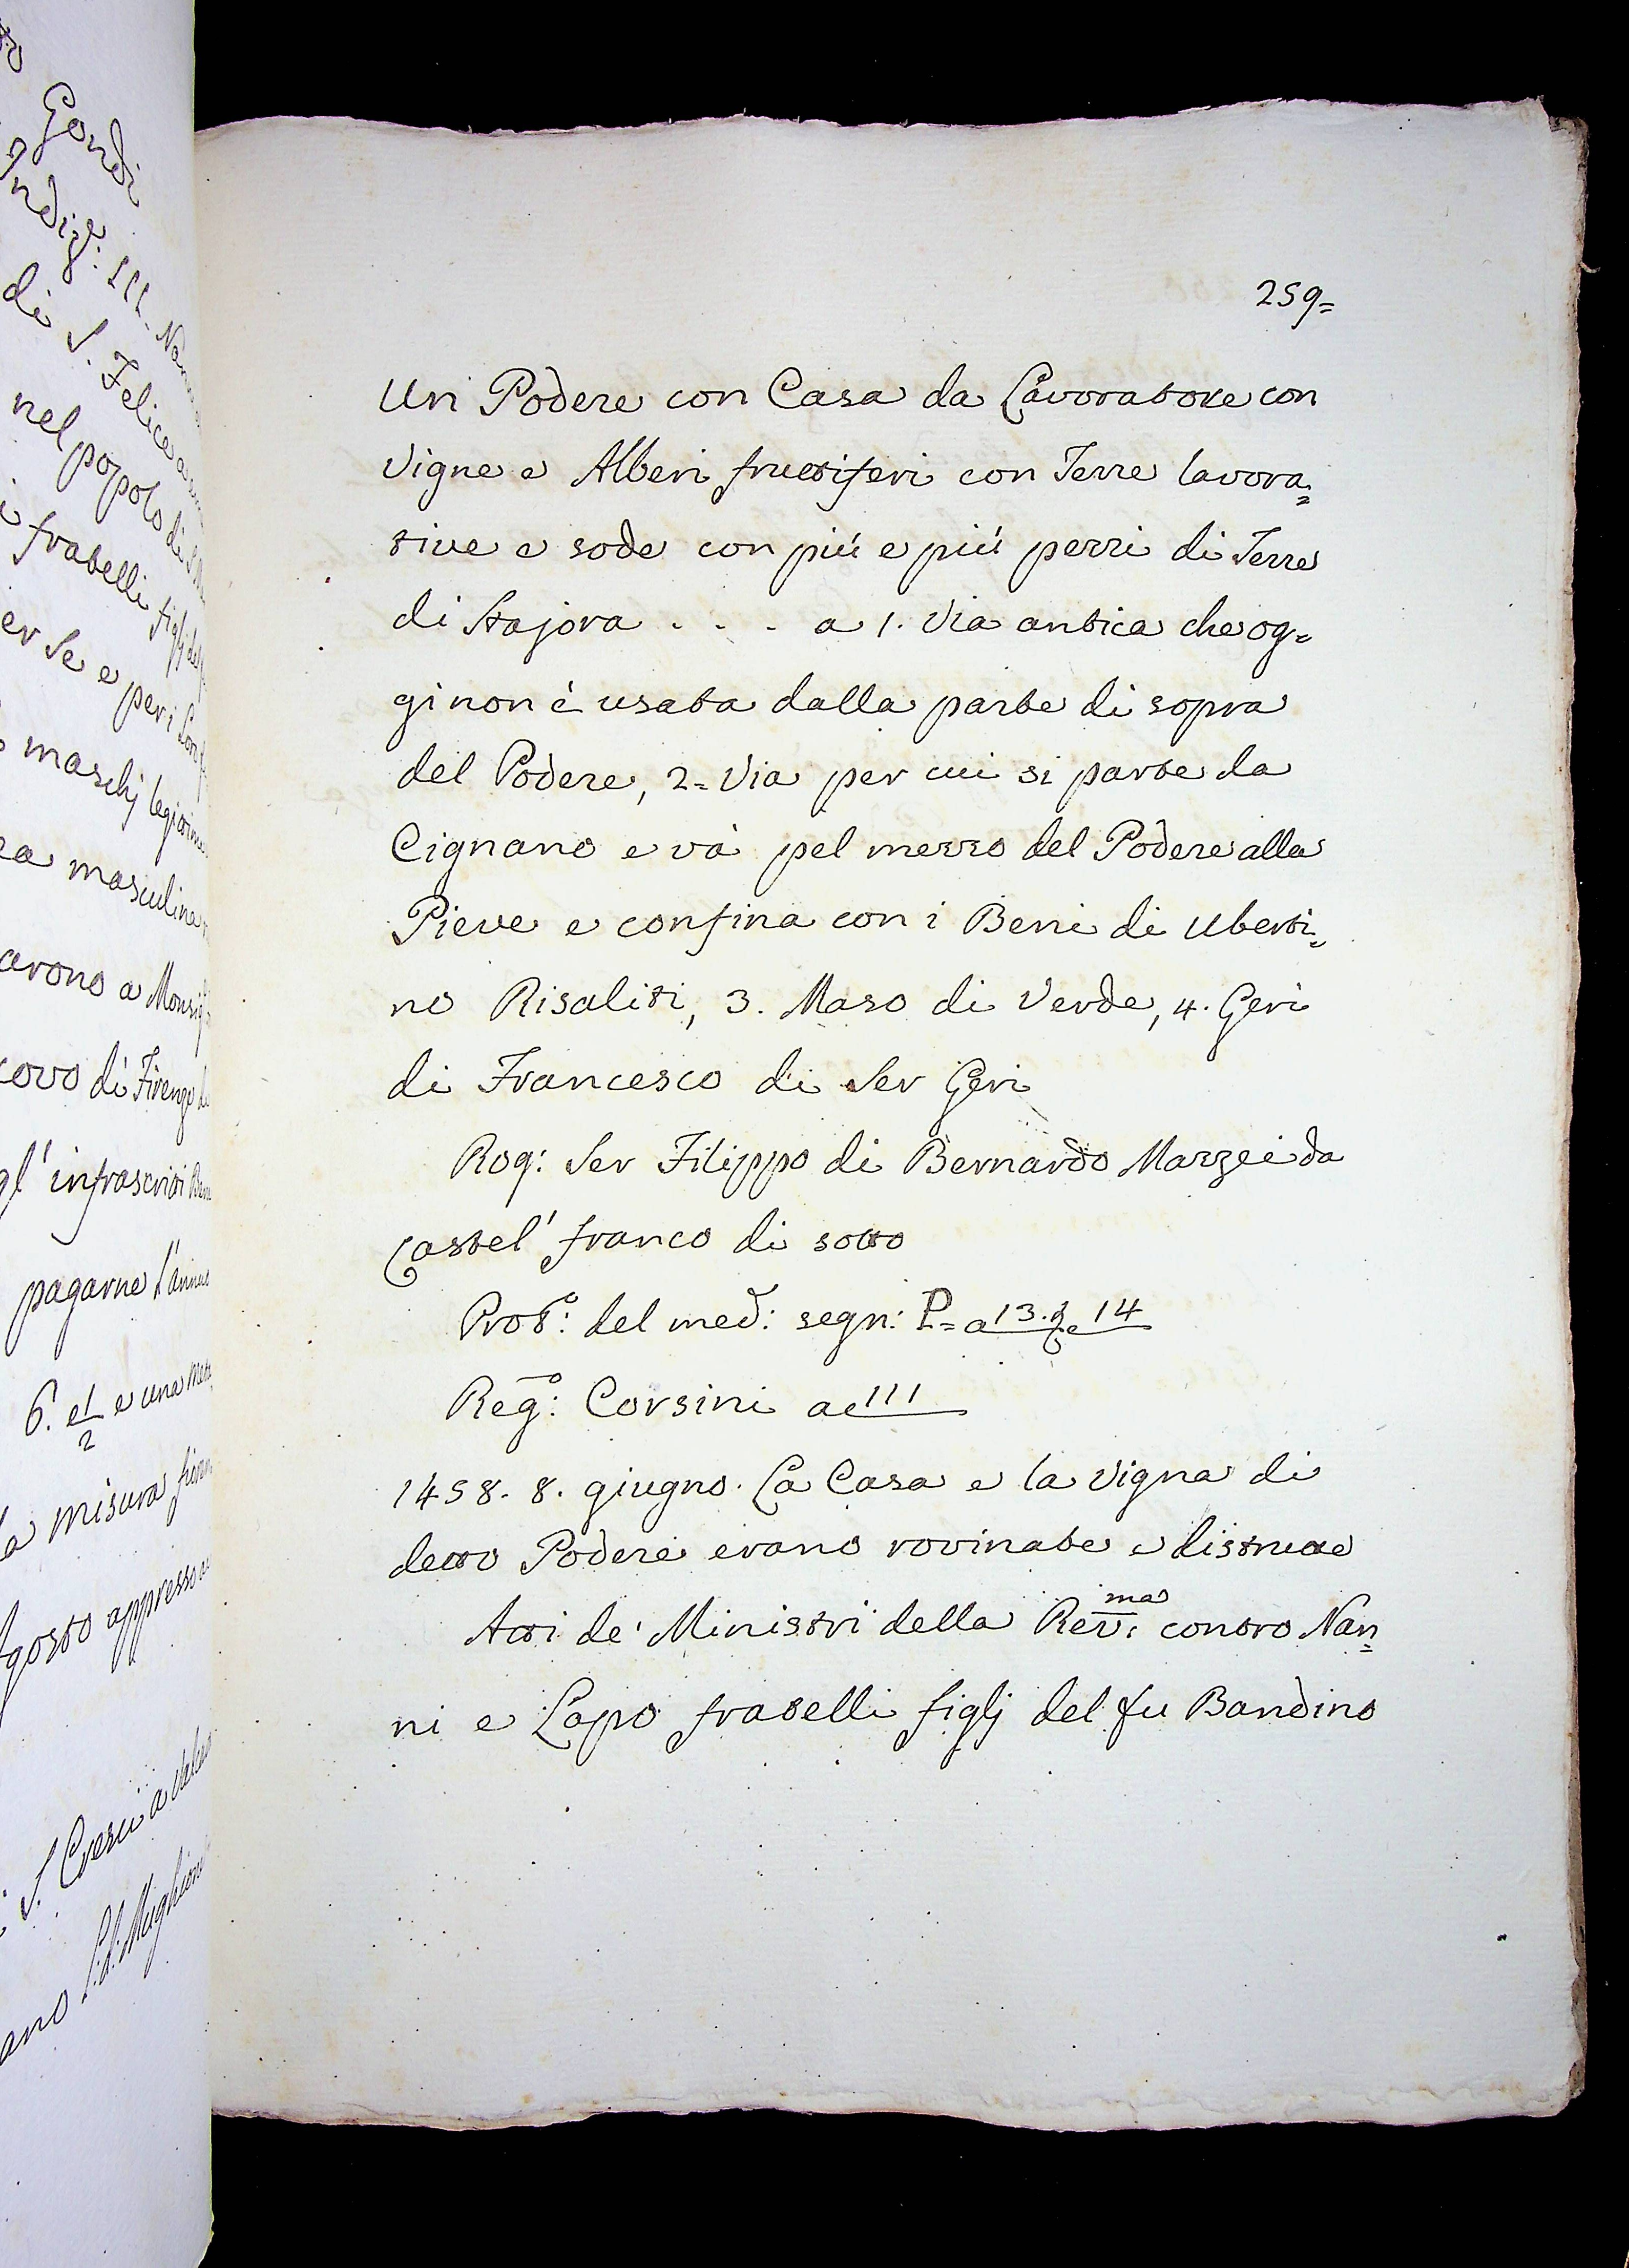 Gondi
Indiz:
di S. Felice a
nel popolo di
fratelli figlj del
er Se e per i
maschj legittimi
ea masculina
arono a Monsig
covo di Firenze
gl' infrascritti Beni
pagarne l'annuo
6. e 1/2 e una
la misura fioren
Agosto appresso
S. Cresci a Valcav
ano
259=
Un Podere con Casa da Lavoratore con
Vigne e Alberi fruttiferi con Terre lavora=
tive e sode con piú e piú pezzi di Terre
di Stajora . . . a 1. Via antica che og=
gi non è usata dalla parte di sopra
del Podere, 2= Via per cui si parte da
Cignano e và pel mezzo del Podere alla
Pieve e confina con i Beni di Uberti=
no Risaliti, 3. Maso di Verde, 4. Geri
di Francesco di Ser Geri
Rog: Ser Filippo di Bernardo Mazzei da
Castel' franco di sotto
Prot:º del med: segn: P= a 13. e 14
Reg:º Corsini a e 111
1458. 8. giugno. La Casa e la Vigna di
detto Podere erano rovinate e distrutte
Atti de' Ministri della Rev:ma contro Nan=
ni e Lapo fratelli figlj del fu Bandino